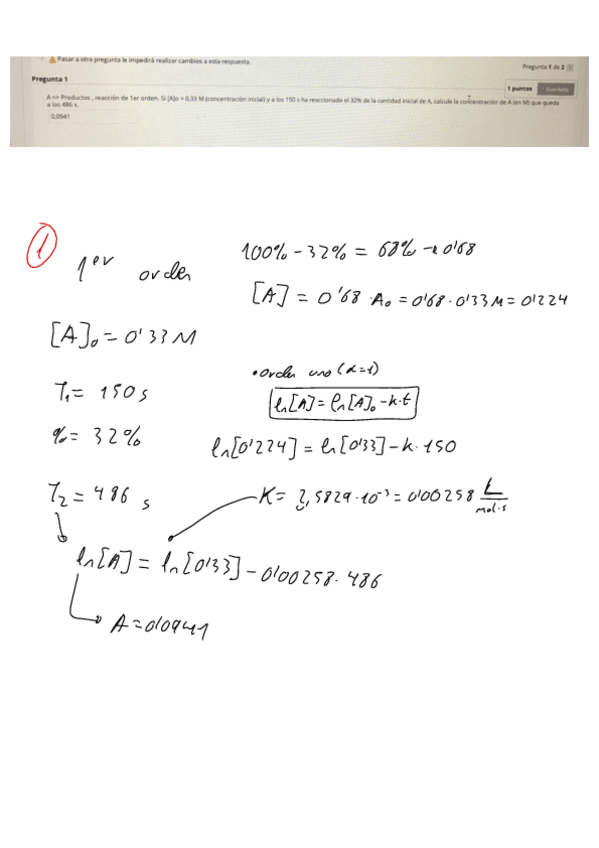 Pasar a otra pregunta le impedirá realizar cambios a esta respuesta.
Pregunta 1 de 2
Pregunta 1
1 puntos
Guardada
A => Productos , reacción de 1er orden. Si [A]o = 0,33 M (concentración inicial) y a los 150 s ha reaccionado el 32% de la cantidad inicial de A, calcule la concentración de A (en M) que queda
a los 486 s.
0,0941
1
1er orden
100% - 32% = 68% → 0'68
[A] = 0'68 · A₀ = 0'68 · 0'33 M = 0'224
[A]₀ = 0'33 M
T₁ = 150 s
% = 32%
T₂ = 486 s
• Orden uno (α=1)
ln[A] = ln[A]₀ - k·t
ln[0'224] = ln[0'33] - k · 150
K = 2,5829 · 10⁻³ = 0'00258 L/mol·s
ln[A] = ln[0'33] - 0'00258 · 486
A = 0'0941